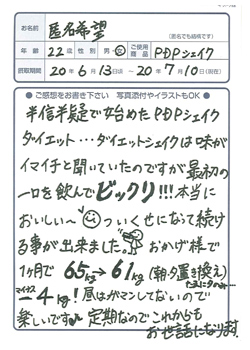 お名前 匿名希望 (匿名でも結構です)
年齢 22歳 性別 男・女 ご使用商品 P.D.Pシェイク
摂取期間 20年6月13日ごろ〜20年7月10日(現在)
●ご感想をお書き下さい 写真添付やイラストもOK●
半信半疑で始めたP.D.Pシェイク
ダイエット…ダイエットシェイクは味が
イマイチと聞いていたのですが最初の
一口を飲んでビックリ!!!本当に
おいしい〜ついくせになって続け
る事が出来ました。おかげ様で
1ヶ月で65kg→61kg(朝・夕置き換え)
たまに夕のみ…
マイナス
−4kg!昼はガマンしてないので
楽しいです♪定期なのでこれからも
お世話になります。